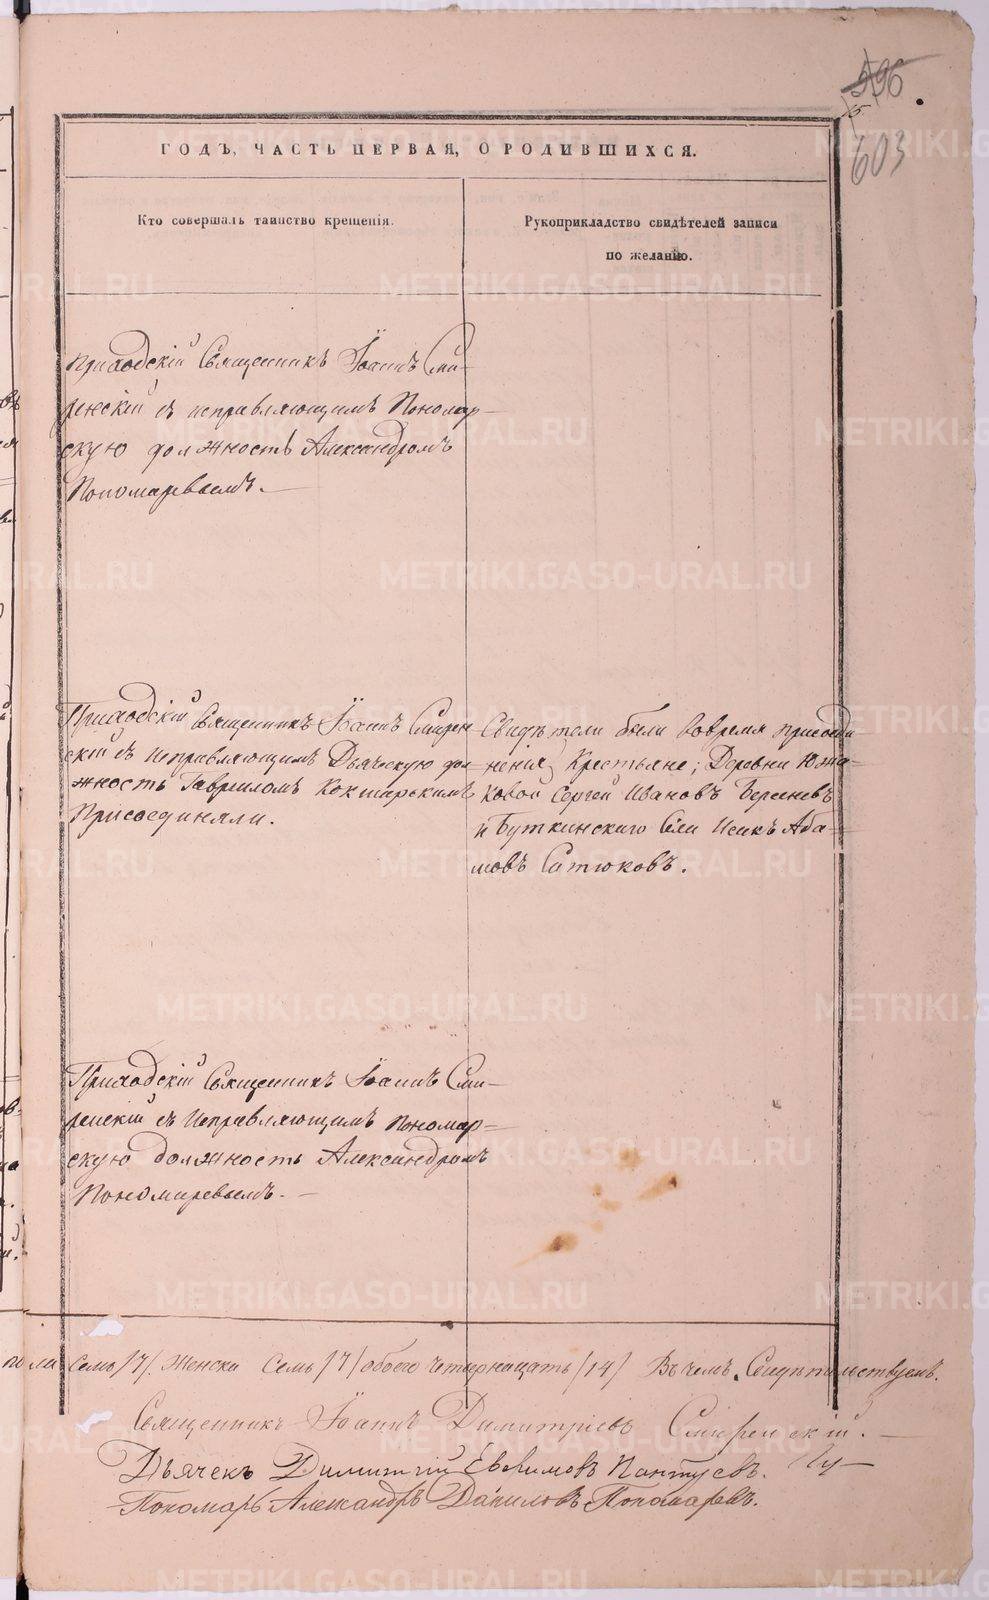 596
603
ГОДЪ, ЧАСТЬ ПЕРВАЯ, О РОДИВШИХСЯ.
Кто совершалъ таинство крещенія.
Рукоприкладство свидѣтелей записи
по желанію.
Приходскій Священникъ Іоаннъ Сми-
ренскій съ исправляющимъ Пономар-
скую должность Александромъ
Пономаревымъ.
Приходскій Священникъ Іоаннъ Смирен-
скій съ Исправляющимъ Дьяческую дол-
жность Гавриломъ Кокшарскимъ
Присоединяли.
Свидѣтели были вовремя присоеди-
ненія, Крестьяне; Деревни
ковой Сергей Ивановъ Берсеневъ
и Буткинскаго Села Исакъ Абра-
мовъ Сатюковъ.
Приходскій Священникъ Іоаннъ Сми-
ренскій съ Исправляющимъ Пономар-
скую должность Александромъ
Пономаревымъ.
пола Семь /7/. Женска Семь /7/ обоего четырнацать /14/ Въ чемъ Свидѣтельствуемъ.
Священникъ Іоаннъ Димитріевъ Смиренскій.
Дьячекъ Димитрій Евфимовъ Пантуевъ.
Пономарь Александръ Даниловъ Пономаревъ.
METRIKI.GASO-URAL.RU